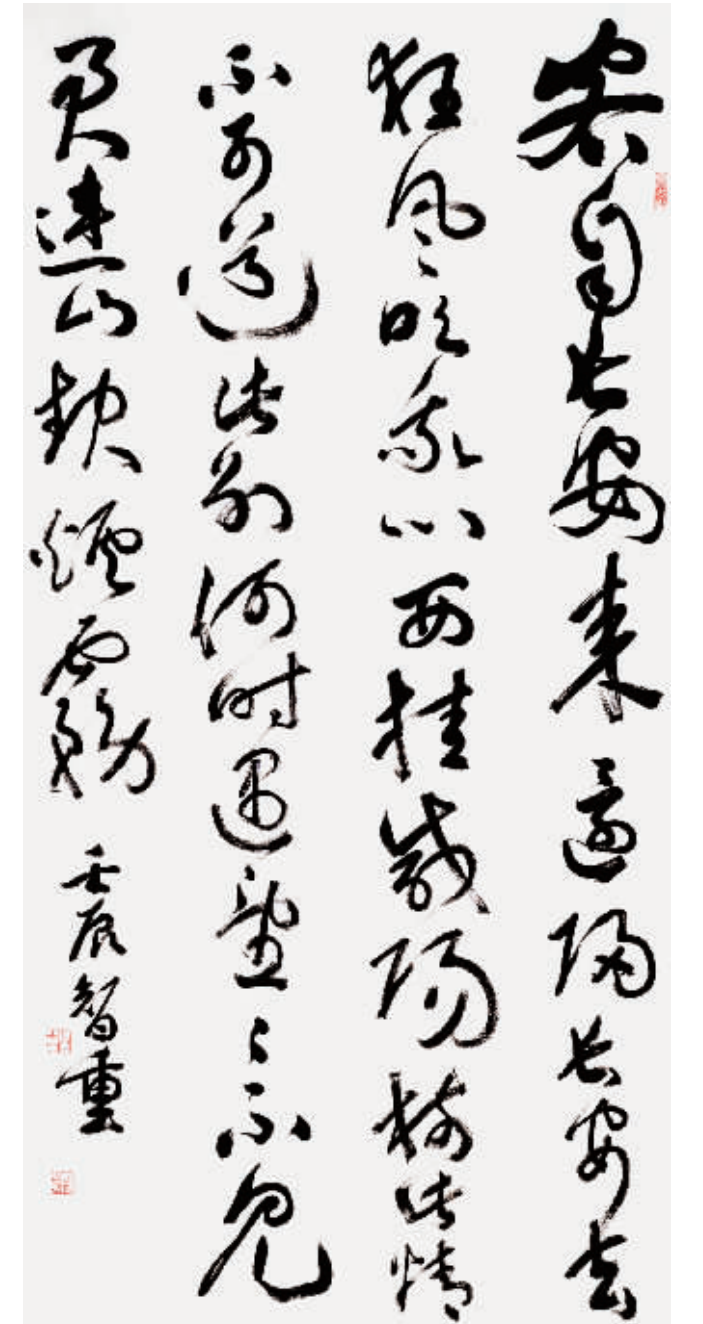 客自長安來還歸長安去
狂風吹我心西挂咸陽樹此情
不可道此別何時遇望々不見
君連山起煙霧 壬辰智重